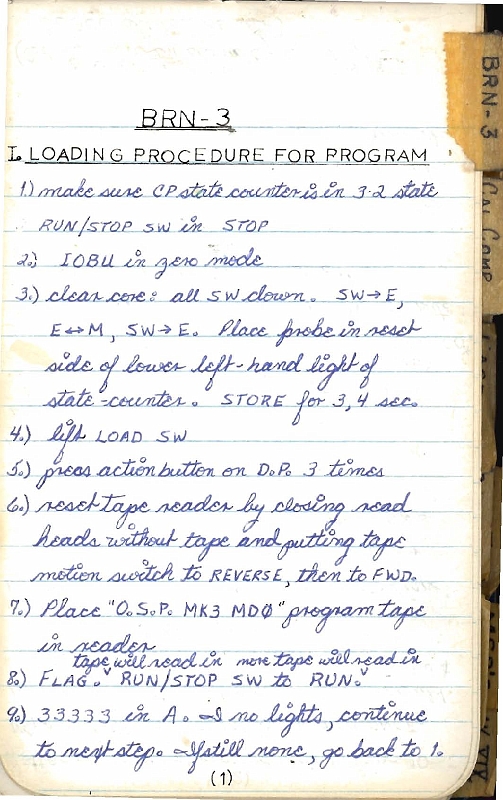 BRN-3
I. LOADING PROCEDURE FOR PROGRAM
1.) make sure CP state counter is in 3-2 state
RUN/STOP SW in STOP
2.) IOBU in zero mode
3.) clear core: all SW down. SW→E,
E↔M, SW→E. Place probe in reset
side of lower left-hand light of
state-counter. STORE for 3,4 sec.
4.) lift LOAD SW
5.) press action button on D.P. 3 times
6.) reset tape reader by closing read
heads without tape and putting tape
motion switch to REVERSE, then to FWD.
7.) Place "O.S.P. MK3 MDØ" program tape
in reader
tape will read in more tape will read in
8.) FLAG.˅ RUN/STOP SW to RUN.˅
9.) 33333 in A. If no lights, continue
to next step. If still none, go back to 1.
(1)
BRN-3